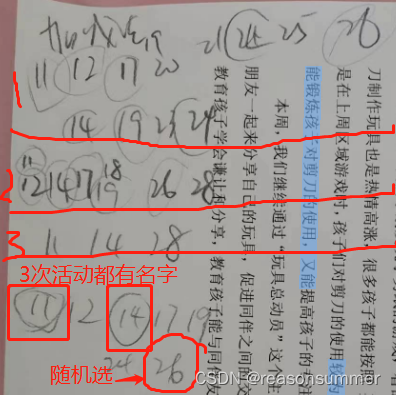 19 21 24 25 26
11 12 17 20
1
14 19 23 24
11 18
2 12 14 17 19 26 28
3 11 14 28
3次活动都有名字
11 12 14 17 19
24 26
随机选
刀制作玩具也是热情高涨，很多孩子都能按照
是在上周区域游戏时，孩子们对剪刀的使用较
能锻炼孩子对剪刀的使用，又能提高孩子的专注
本周，我们继续通过“玩具总动员”这个主
朋友一起来分享自己的玩具，促进同伴之间的交
教育孩子学会谦让和分享，教育孩子能与同伴友
CSDN @reasonsummer